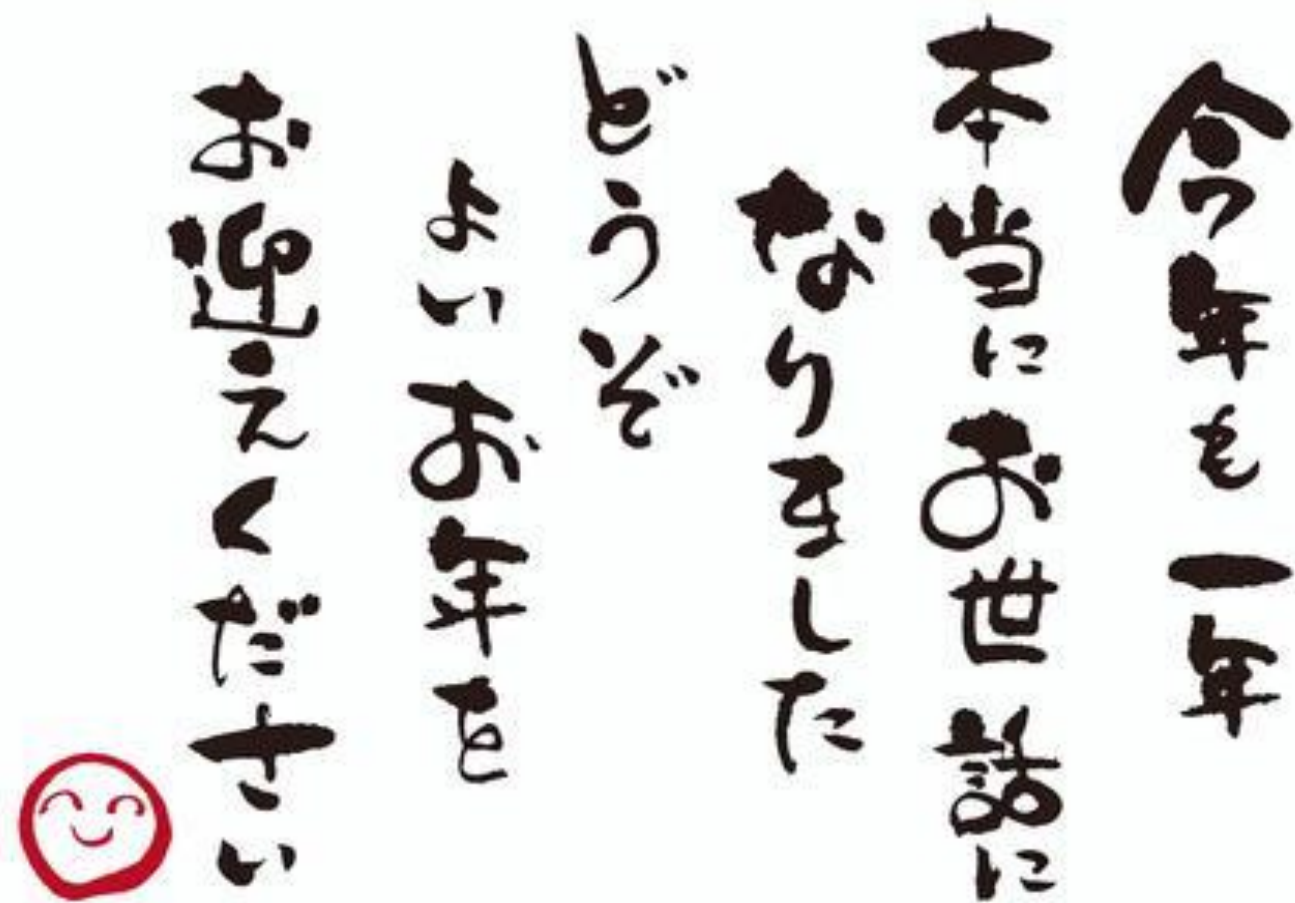 今年も一年
本当にお世話に
なりました
どうぞ
よいお年を
お迎えください